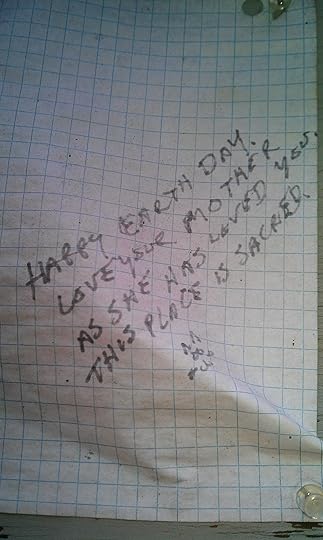 HAPPY EARTH DAY.
LOVE YOUR MOTHER
AS SHE HAS LOVED YOU.
THIS PLACE IS SACRED.